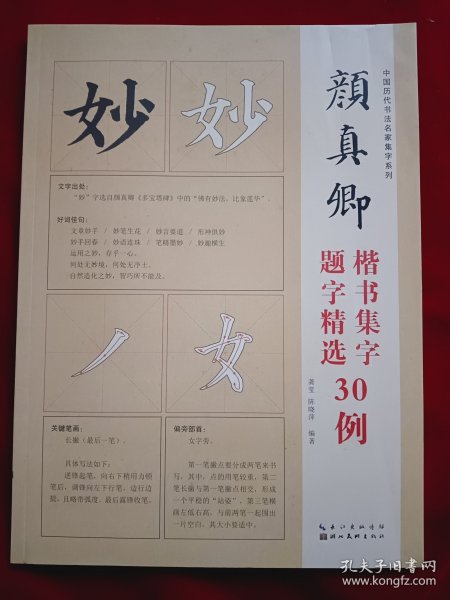 中国历代书法名家集字系列
顔真卿
楷书集字
题字精选30例
龚莹 陈晓萍 编著
妙
妙
文字出处：
“妙”字选自颜真卿《多宝塔碑》中的“佛有妙法，比象莲华”。
好词佳句：
文章妙手 / 妙笔生花 / 妙言要道 / 形神俱妙
妙手回春 / 妙语连珠 / 笔精墨妙 / 妙趣横生
运用之妙，存乎一心。
何处无妙境，何处无净土。
自然造化之妙，智巧所不能及。
丿
女
关键笔画：
长撇（最后一笔）。
具体写法如下：
逆锋起笔，向右下稍用力顿
笔后，调锋向左下行笔，边行边
提，且略带弧度，最后露锋收笔。
偏旁部首：
女字旁。
第一笔撇点要分成两笔来书
写，其中，点的用笔较重，第二
笔长撇与第一笔撇点相交，形成
一个平稳的“站姿”，第三笔横
画左低右高，与前两笔一起围出
一片空白，其大小要适中。
长江出版传媒
湖北美术出版社
孔夫子旧书网
www.kongfz.com